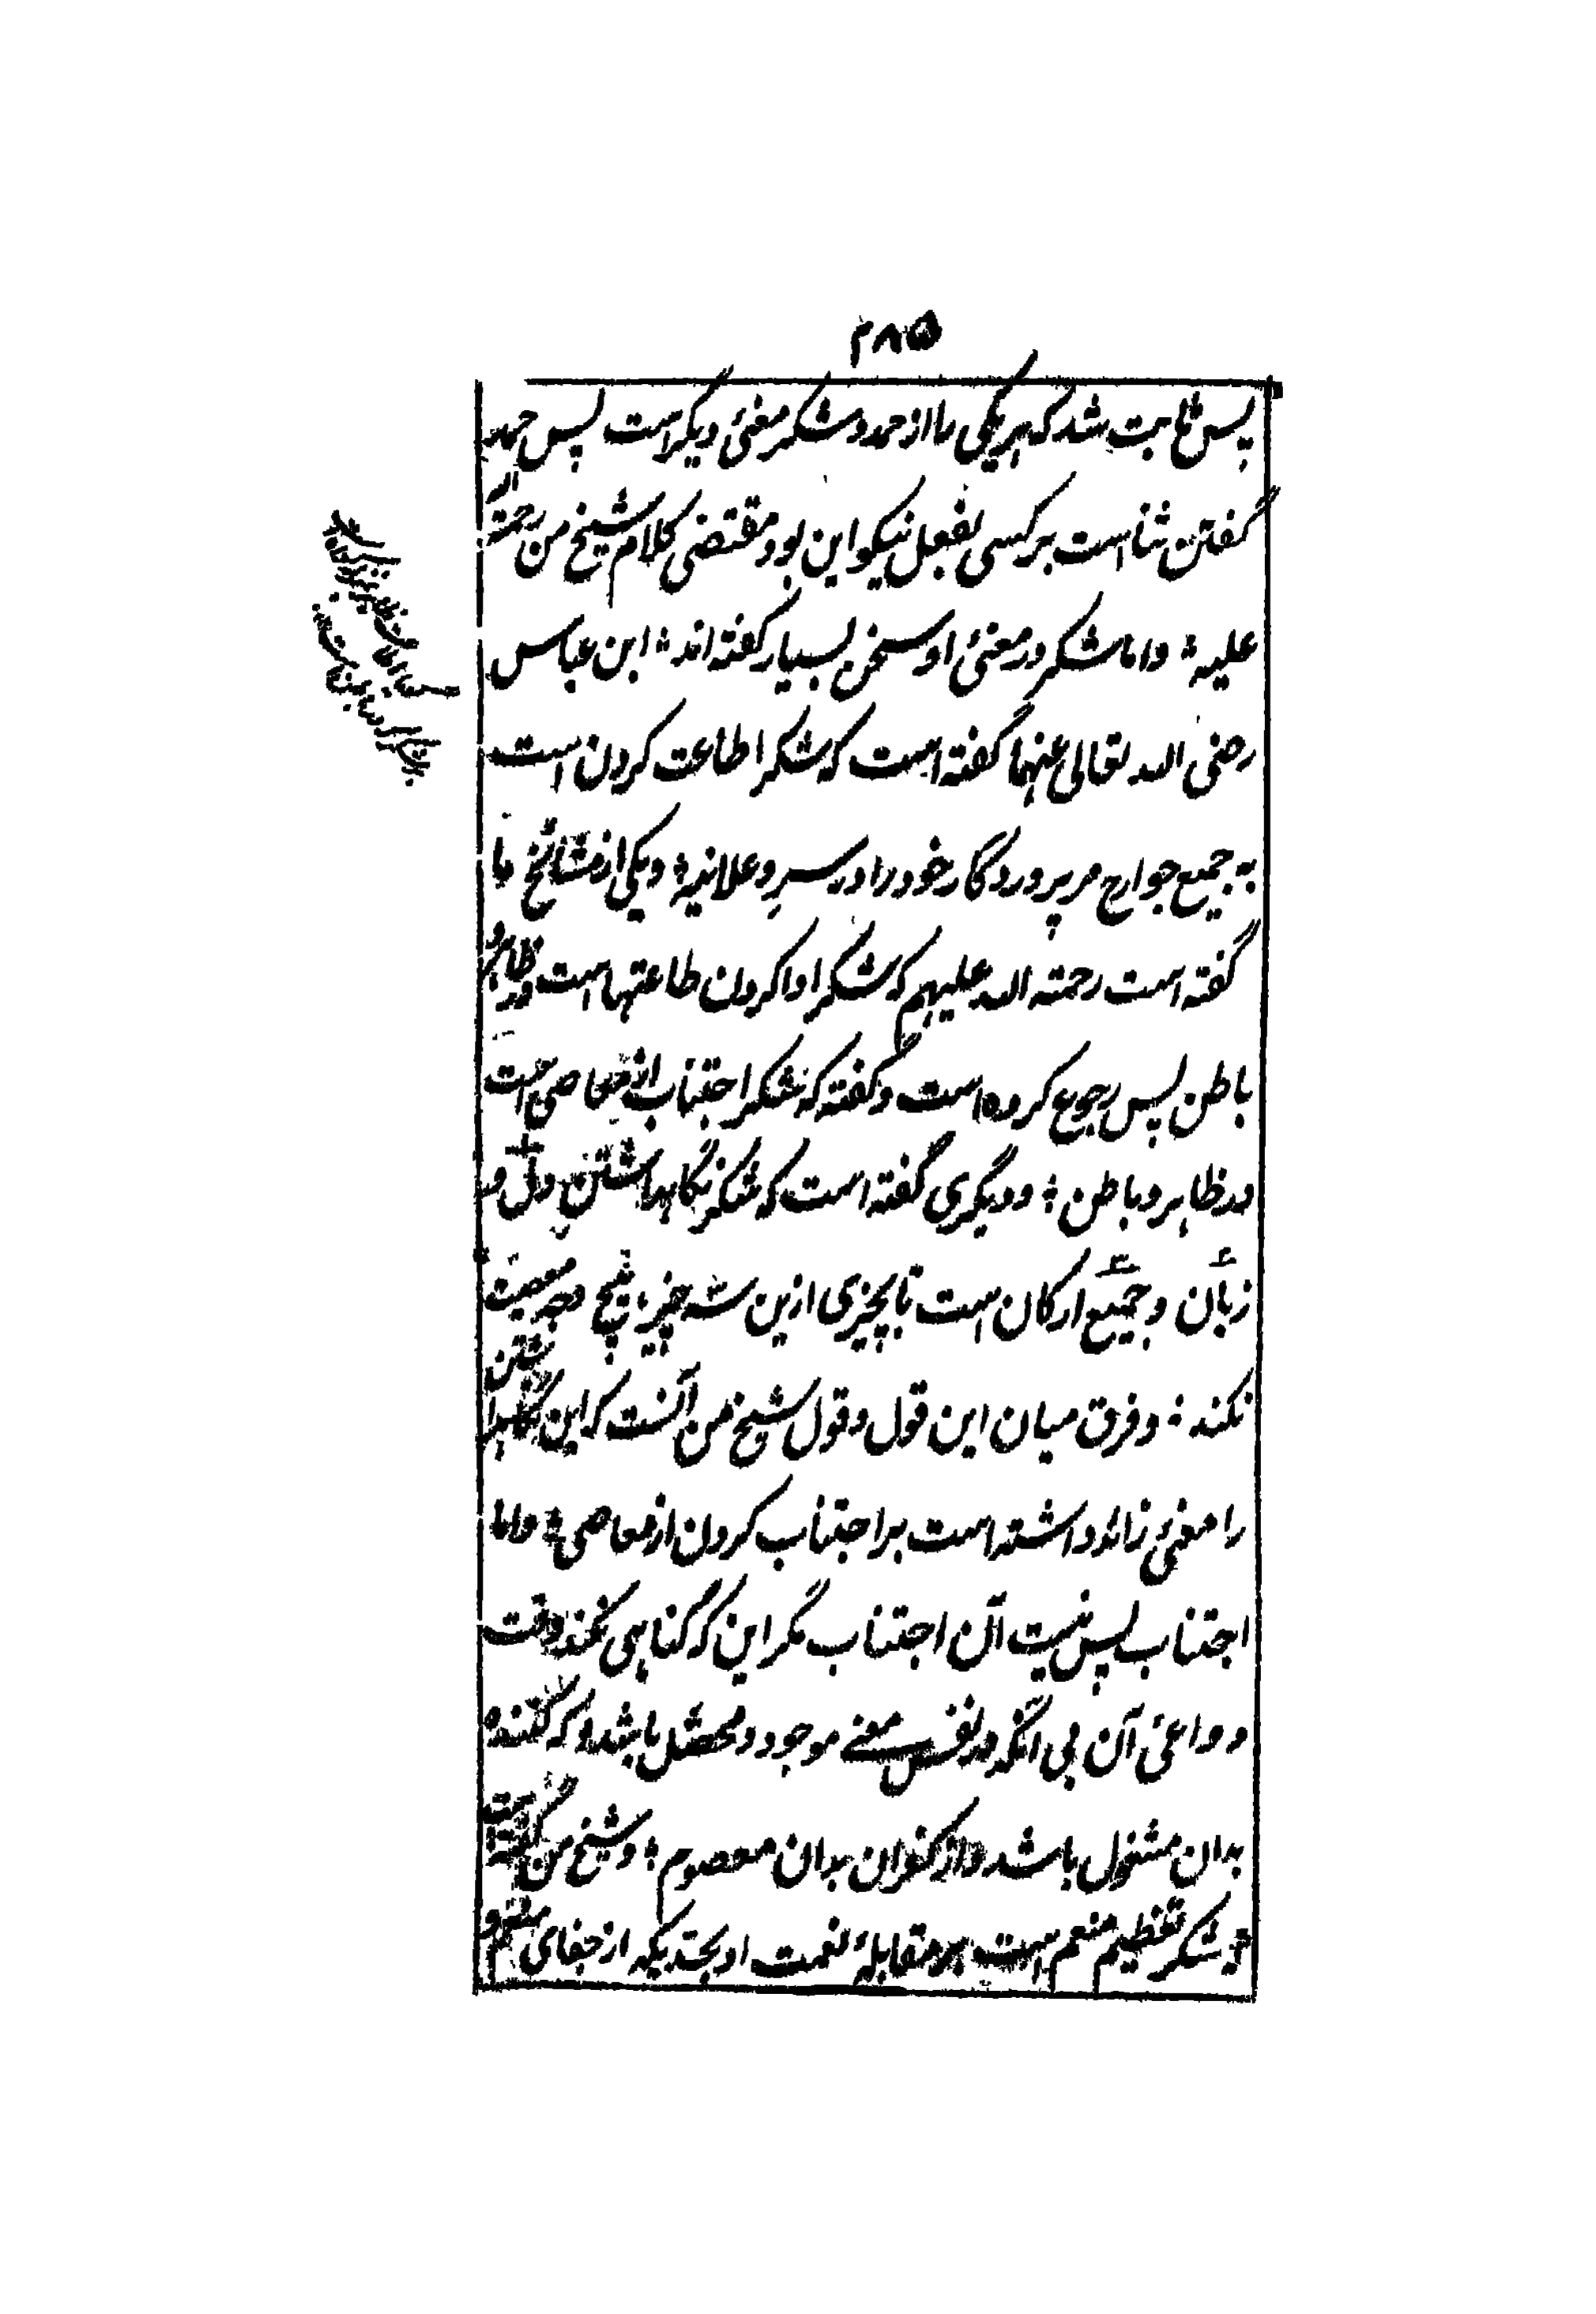 ۲۸۵
پس ثابت شد که هر یکی را از حمد و شکر معنیٔ دیگر است پس حمد
گفتن ثنا است بر کسی بفعل نیکو این بود مقتضی کلام شیخ من رحمة الله
علیه ؛ و اما شکر در معنیٔ او سخن بسیار گفته اند ؛ ابن عباس
رضی الله تعالی عنهما گفته است که شکر اطاعت کردن است
به جمیع جوارح مر پروردگار خود را در سرِ و علانیه ؛ و یکی از مشائخ ما
گفته است رحمته الله علیهم که شکر ادا کردن طاعتها است در ظاهر و
باطن پس رجوع کرده است و گفته که شکر اجتناب از معاصی است
در ظاهر و باطن ؛ و دیگری گفته است که شکر نگاهداشتن دل و
زبان و جمیع ارکان است تا بچیزی ازین سه چیز هیچ وجه معصیت
نکند ؛ و فرق میان این قول و قول شیخ من آنست که این نگاهداشتن
را معنیٔ زائد داشته است بر اجتناب کردن از معاصی ؛ و اما
اجتناب پس نیست آن اجتناب مگر این که گناهی نکند وقت
دواعیٔ آن بی آنکه در نفس معنے موجود و محصّل باشد که کننده
بدان مشغول باشد و از کفران بدان معصوم ؛ و شیخ من گفته است
که شکر تعظیم منعم است بر مقابلهٔ نعمت او بحدیکه از جفای منعم و